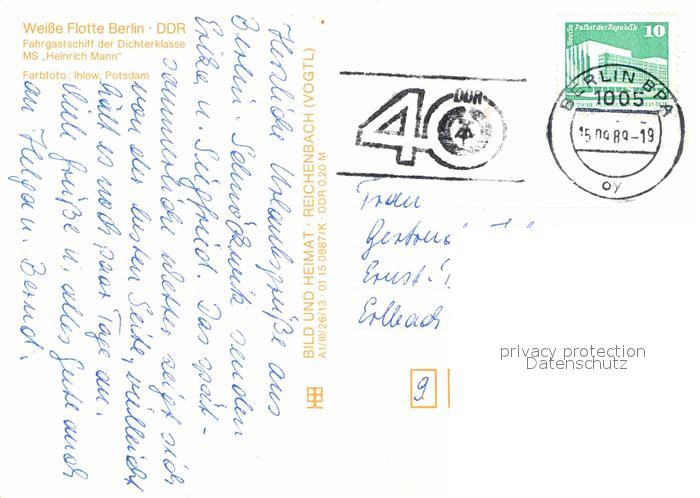 Weiße Flotte Berlin · DDR
Fahrgastschiff der Dichterklasse
MS „Heinrich Mann"
Farbfoto: Ihlow, Potsdam
Herzliche Urlaubsgrüße aus
Berlin - Schmöckwitz senden
Erika u. Siegfried. Das spät-
sommerliche Wetter zeigt sich
von der besten Seite, vielleicht
hält es noch paar Tage an.
Viele Grüße u. alles Gute auch
an Helga u. Bernd.
BILD UND HEIMAT · REICHENBACH (VOGTL)
A1/III/26/13 01 15 0887/K · DDR 0,20 M
Berlin, Palast der Republik
10
DDR
40
BERLIN BPA
1005
15.09.89-19
oy
Frau
Gertrud
Ernst-T
Erlbach
9
privacy protection
Datenschutz